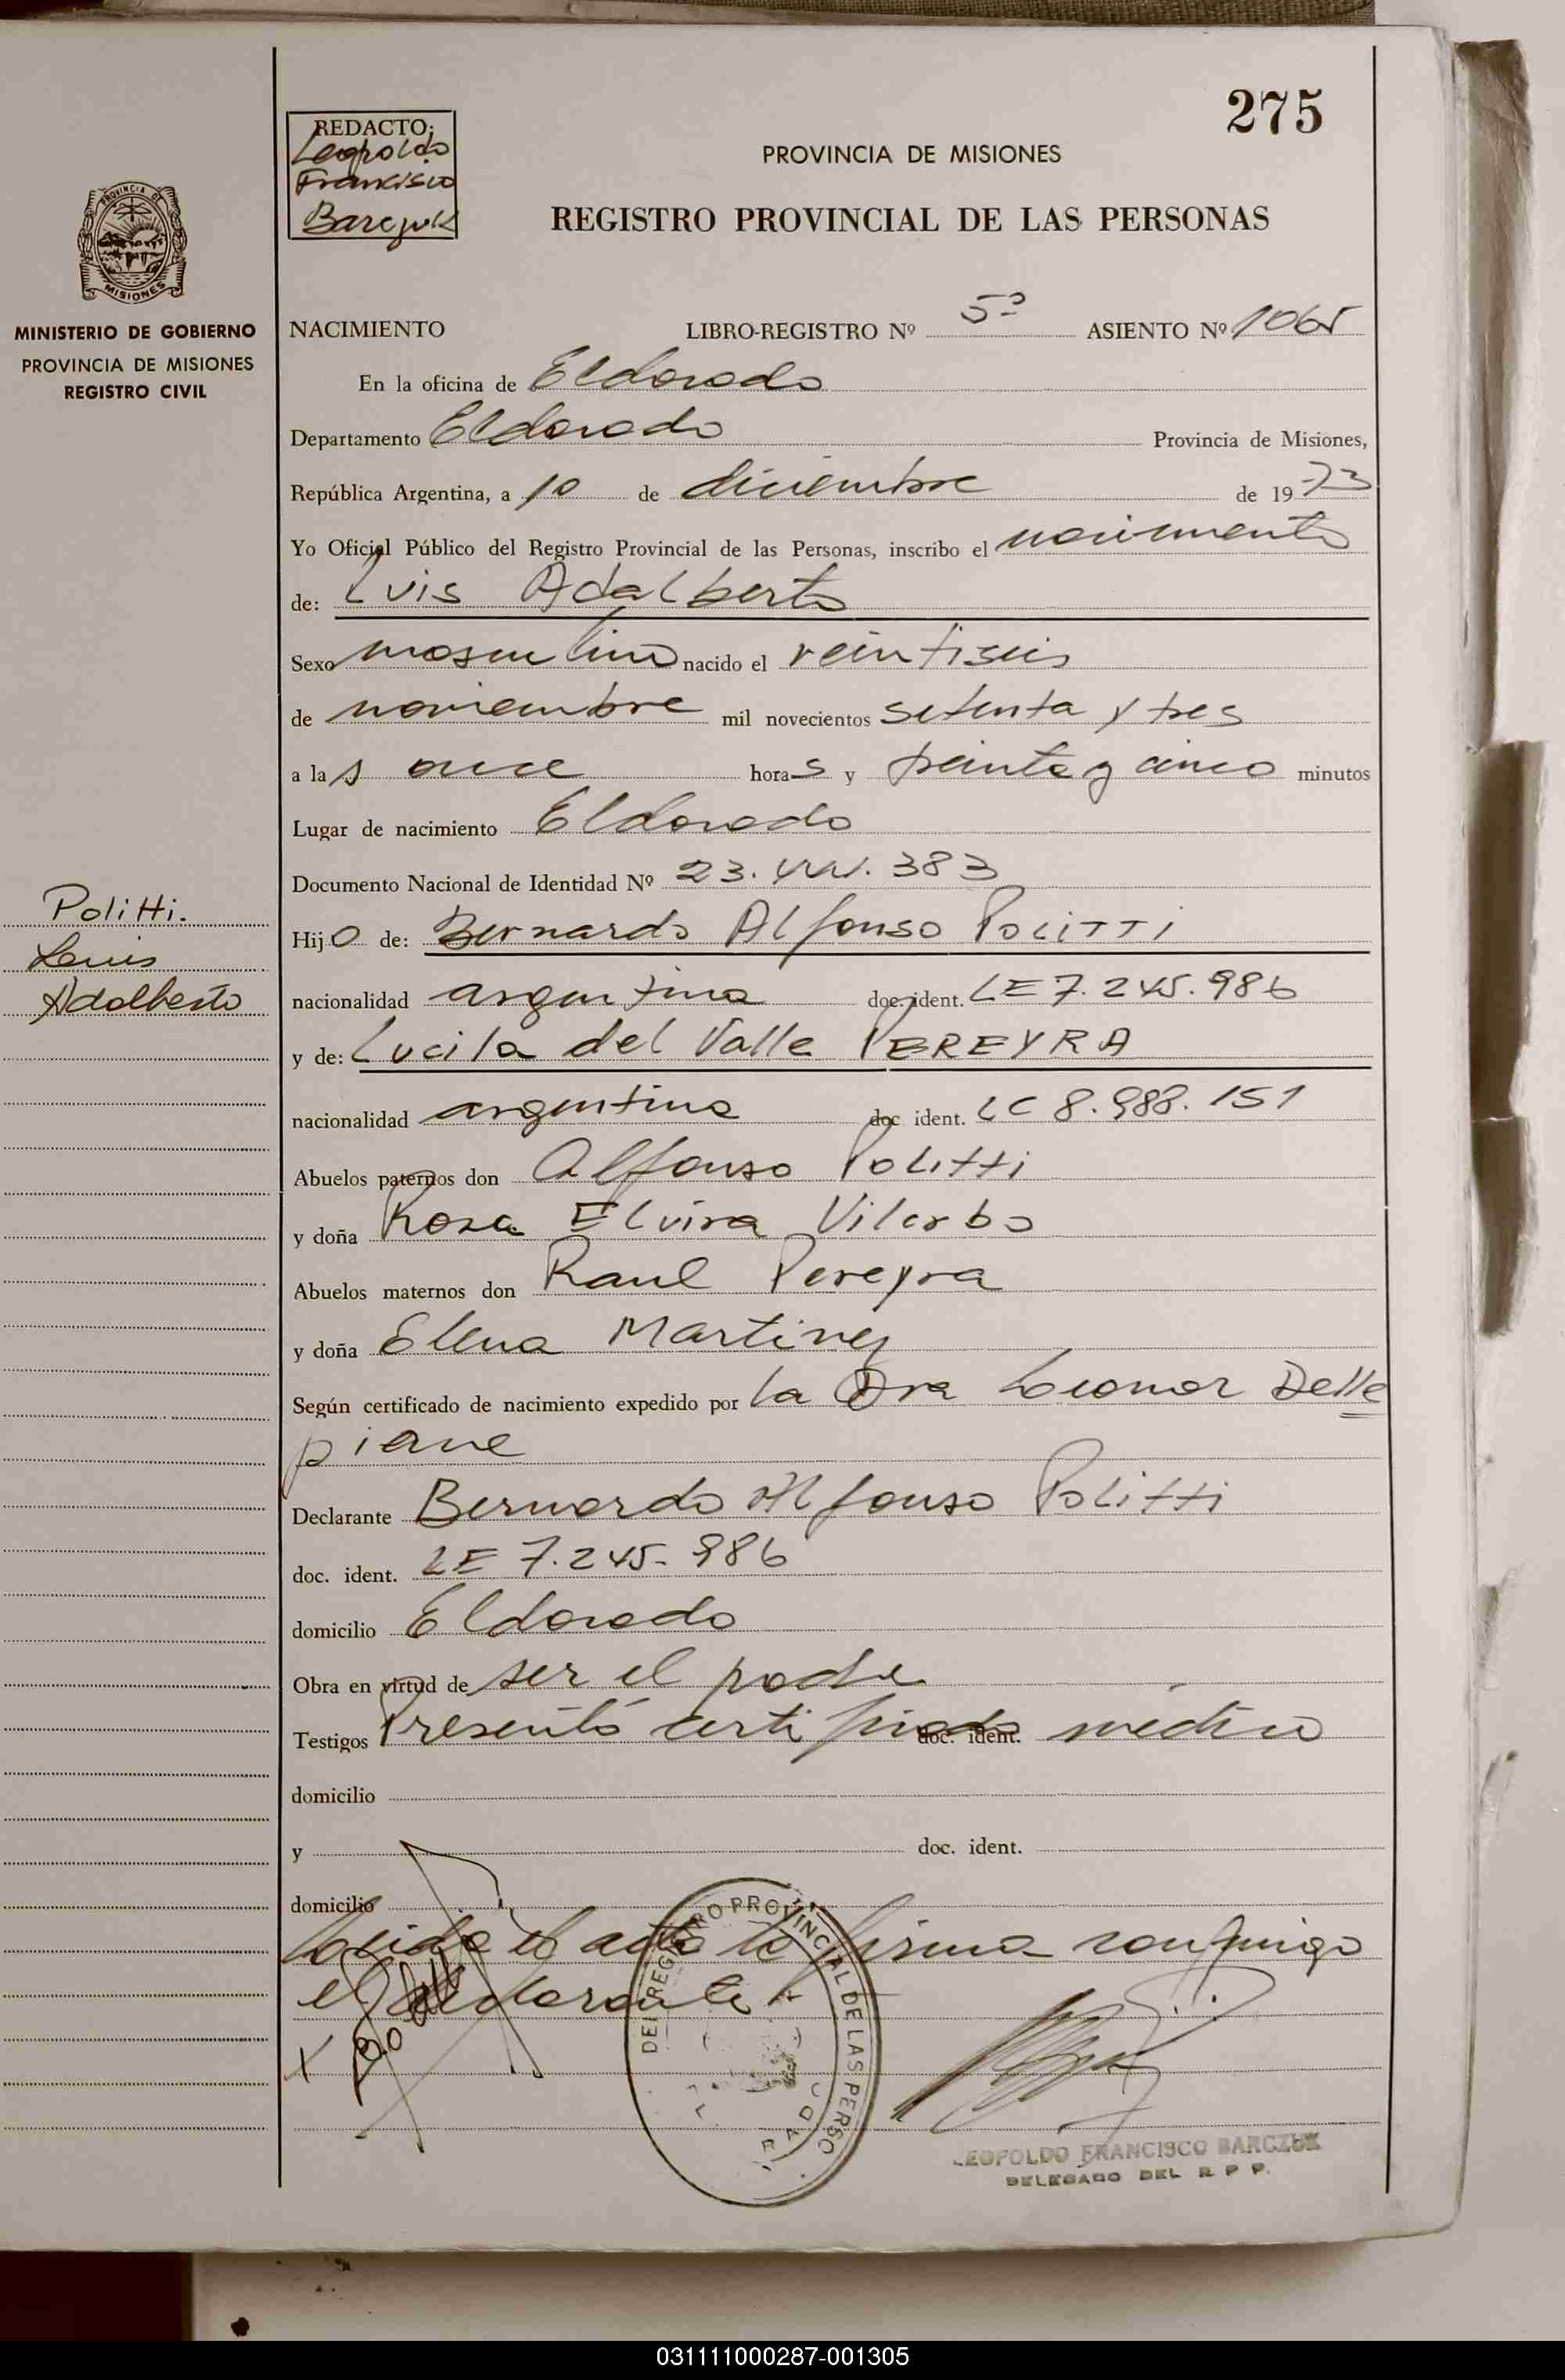 275
REDACTO:
Leopoldo
Francisco
Barczuk
PROVINCIA DE MISIONES
REGISTRO PROVINCIAL DE LAS PERSONAS
PROVINCIA DE
MISIONES
MINISTERIO DE GOBIERNO
PROVINCIA DE MISIONES
REGISTRO CIVIL
NACIMIENTO LIBRO-REGISTRO Nº 5º ASIENTO Nº 1065
En la oficina de Eldorado
Departamento Eldorado Provincia de Misiones,
República Argentina, a 10 de diciembre de 1973
Yo Oficial Público del Registro Provincial de las Personas, inscribo el nacimiento
de: Luis Adalberto
Sexo masculino nacido el veintiseis
de noviembre mil novecientos setenta y tres
a las once horas y treinta y cinco minutos
Lugar de nacimiento Eldorado
Documento Nacional de Identidad Nº 23. 383
Politti.
Luis
Adalberto
Hijo de: Bernardo Alfonso POLITTI
nacionalidad argentina doc. ident. LE 7.245.986
y de: Lucila del Valle PEREYRA
nacionalidad argentina doc ident. LC 8.988.151
Abuelos paternos don Alfonso Politti
y doña Rosa Elvira
Abuelos maternos don Raul Pereyra
y doña Elena Martinez
Según certificado de nacimiento expedido por la Dra Leonor Delle
piane
Declarante Bernardo Alfonso Politti
doc. ident. LE 7.245.986
domicilio Eldorado
Obra en virtud de ser el padre
Testigos Presentó certificado doc. ident. médico
domicilio
y doc. ident.
domicilio
Leida el acta la firma conmigo
el declarante
DEL REGISTRO PROVINCIAL DE LAS PERSO
LEOPOLDO FRANCISCO BARCZUK
DELEGADO DEL R P P.
031111000287-001305